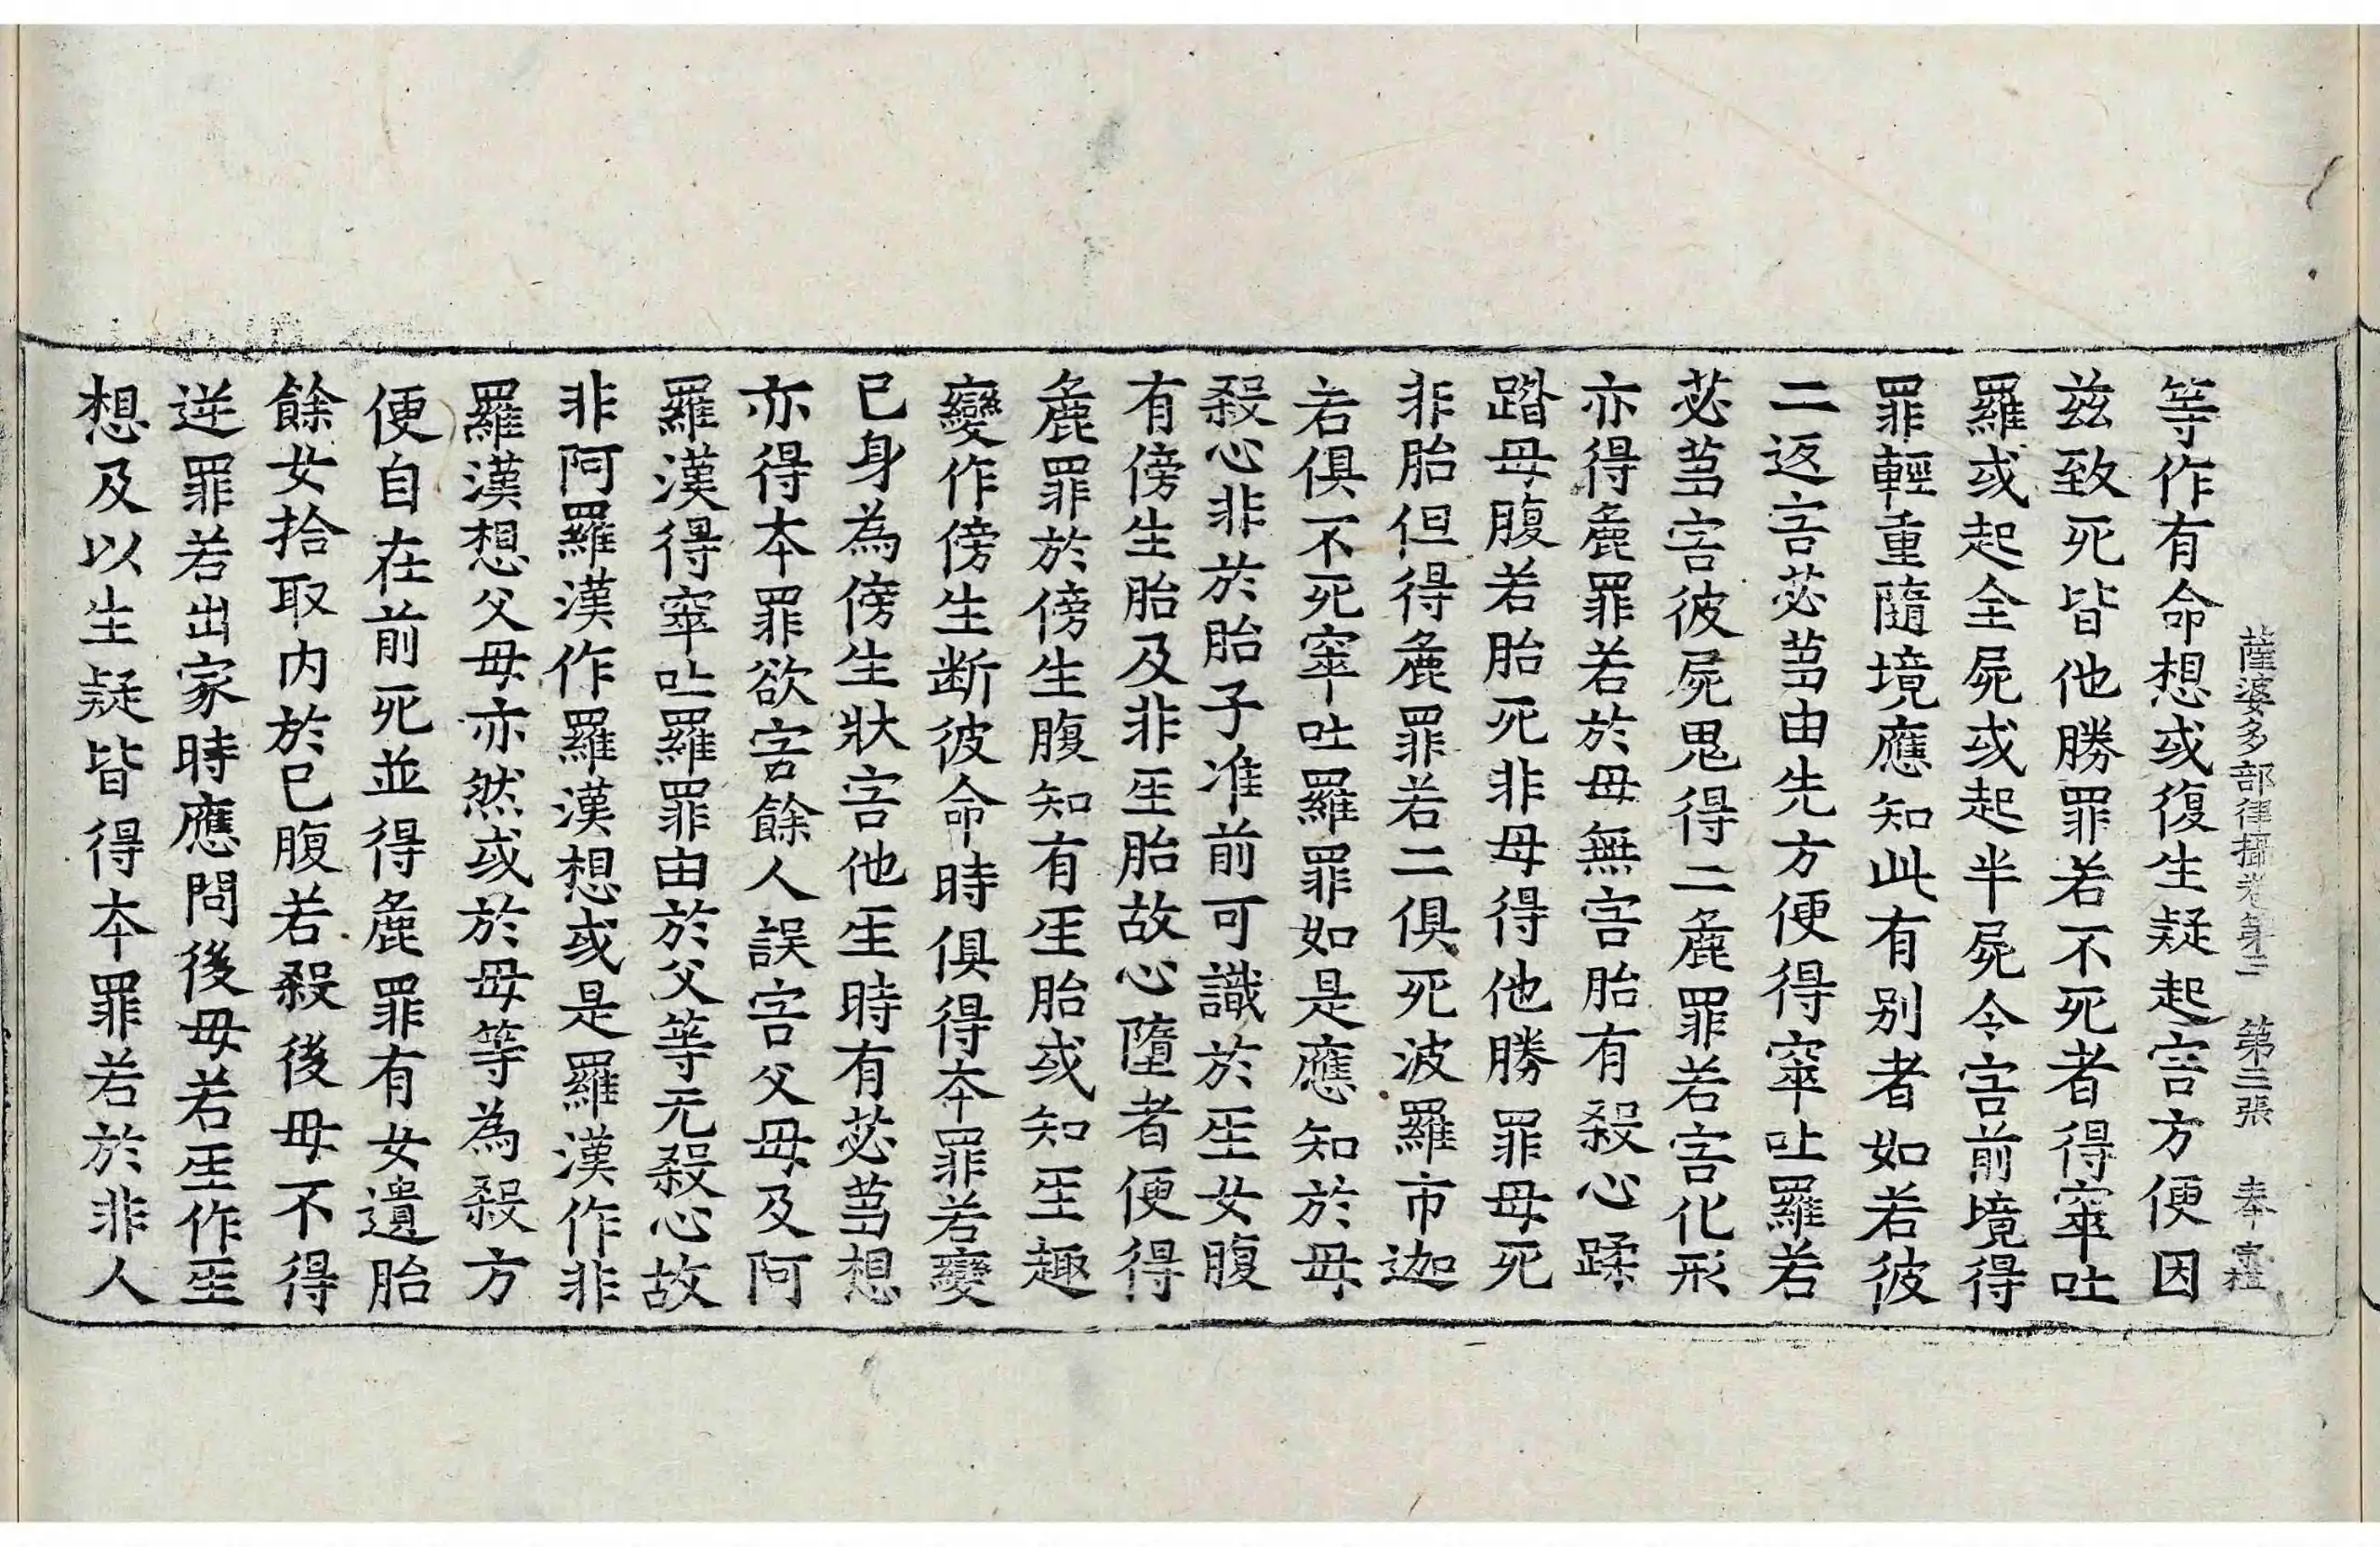 薩婆多部律攝卷第三　第三張　奉　宗楷
等作有命想或復生疑起害方便因
兹致死皆他勝罪若不死者得窣吐
羅或起全屍或起半屍令害前境得
罪輕重隨境應知此有别者如若彼
二返害苾蒭由先方便得窣吐羅若
苾蒭害彼屍鬼得二麁罪若害化形
亦得麁罪若於母無害胎有殺心蹂
踏母腹若胎死非母得他勝罪母死
非胎但得麁罪若二俱死波羅市迦
若俱不死窣吐羅罪如是應知於母
殺心非於胎子准前可識於𤯔女腹
有傍生胎及非𤯔胎故心墮者便得
麁罪於傍生腹知有𤯔胎或知𤯔趣
變作傍生断彼命時俱得本罪若變
已身為傍生狀害他𤯔時有苾蒭想
亦得本罪欲害餘人誤害父母及阿
羅漢得窣吐羅罪由於父等元殺心故
非阿羅漢作羅漢想或是羅漢作非
羅漢想父母亦然或於母等為殺方
便自在前死並得麁罪有女遺胎
餘女拾取内於已腹若殺後母不得
逆罪若出家時應問後母若𤯔作𤯔
想及以生疑皆得本罪若於非人